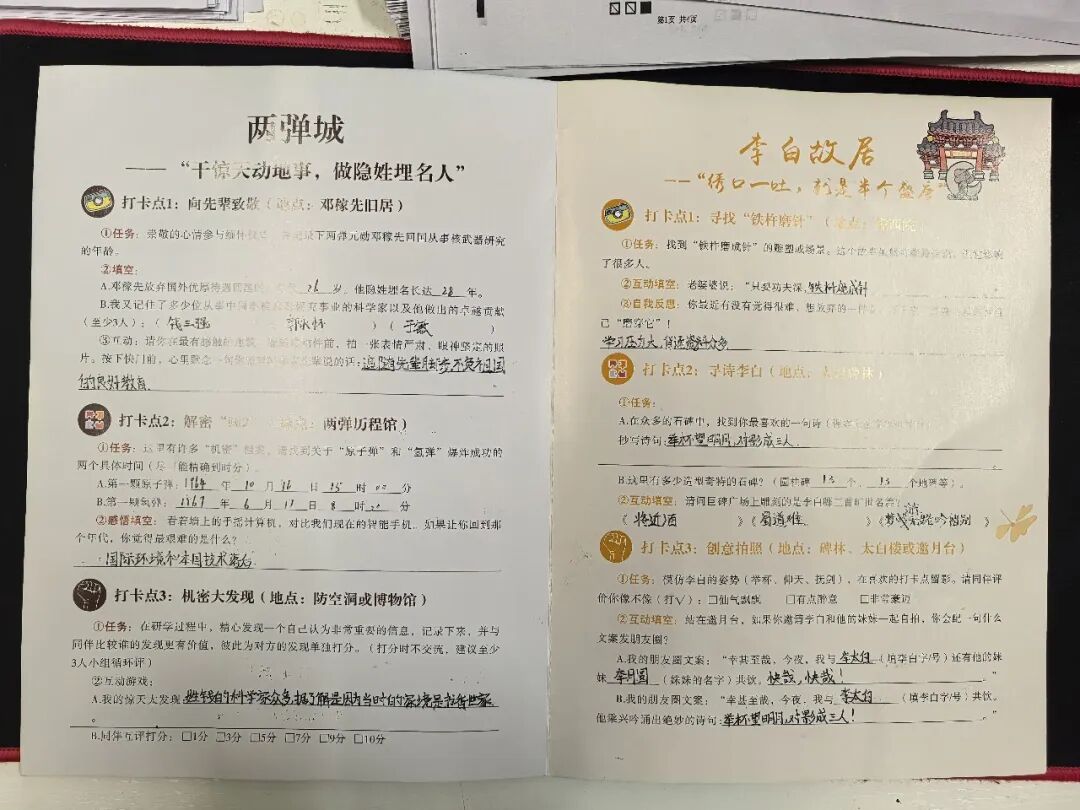 第1页 共4页
两弹城
——“干惊天动地事，做隐姓埋名人”
打卡点1：向先辈致敬（地点：邓稼先旧居）
①任务：崇敬的心情参与缅怀仪式，并记录下两弹元勋邓稼先同问从事核武器研究
的年龄。
②填空：
A.邓稼先放弃国外优厚待遇回国时，年仅 26 岁。他隐姓埋名长达 28 年。
B.我又记住了多少位从事中国核武器研究事业的科学家以及他做出的卓越贡献
（至少3人）：（ 钱三强 ）（ 郭永怀 ）（ 于敏 ）
③互动：请你在最有感触的建筑、雕塑或物件前，拍一张表情严肃、眼神坚定的照
片。按下快门前，心里默念一句 先辈说的话：追随先辈脚步,不负祖国
的良好教育.
打卡点2：解密“ （地点：两弹历程馆）
①任务：这里有许多“机密”档案，请找到关于“原子弹”和“氢弹”爆炸成功的
两个具体时间（尽可能精确到时分）。
A.第一颗原子弹：1964 年 10 月 16 日 15 时 00 分
B.第一颗氢弹：1967 年 6 月 17 日 8 时 20 分
②感悟填空：看着墙上的手摇计算机，对比我们现在的智能手机。如果让你回到那
个年代，你觉得最艰难的是什么？
国际环境和本国技术落后
打卡点3：机密大发现（地点：防空洞或博物馆）
①任务：在研学过程中，精心发现一个自己认为非常重要的信息，记录下来，并与
同伴比较谁的发现更有价值，彼此为对方的发现单独打分。（打分时不交流，建议至少
3人小组循环评）
②互动游戏：
A.我的惊天大发现：姓钱的科学家众多,据了解是因为当时的家境是书香世家
。
B.同伴互评打分：□1分 □3分 □5分 □7分 □9分 □10分
李白故居
——“绣口一吐，就是半个盛唐”
打卡点1：寻找“铁杵磨针”（地点：
①任务：找到“铁杵磨成针”的雕塑或场景。这个故事
了很多人。
②互动填空：老婆婆说：“只要功夫深,铁杵磨成针
③自我反思：你最近有没有觉得很难、想放弃的一件
己“磨穿它”！
学习压力大,背诵资料多
打卡点2：寻诗李白（地点：
①任务：
A.在众多的石碑中，找到你最喜欢的一句诗（
抄写诗句:举杯邀明月,对影成三人.
B.这里有多少造型奇特的石碑？（圆柱碑 13 个、 13 个地碑等）。
②互动填空：请问巨碑广场上雕刻的是李白哪三首旷世名篇？
（ 将近酒 ）（ 蜀道难. ）（梦游天姥吟留别 ）
打卡点3：创意拍照（地点：碑林、太白楼或邀月台）
①任务：模仿李白的姿势（举杯、仰天、抚剑），在喜欢的打卡点留影。请同伴评
价你像不像（打√）：□仙气飘飘 □有点醉意 □非常豪迈
②互动填空：站在邀月台，如果你邀请李白和他的妹妹一起自拍，你会配一句什么
文案发朋友圈？
A.我的朋友圈文案：“幸甚至哉，今夜，我与 李太白 （填李白字/号）还有他的妹
妹 李月圆 （妹妹的名字）共饮。快哉,快哉！ 。”
B.我的朋友圈文案：“幸甚至哉，今夜，我与 李太白 （填李白字/号）共饮。
他乘兴吟诵出绝妙的诗句:举杯邀明月,对影成三人！ 。”